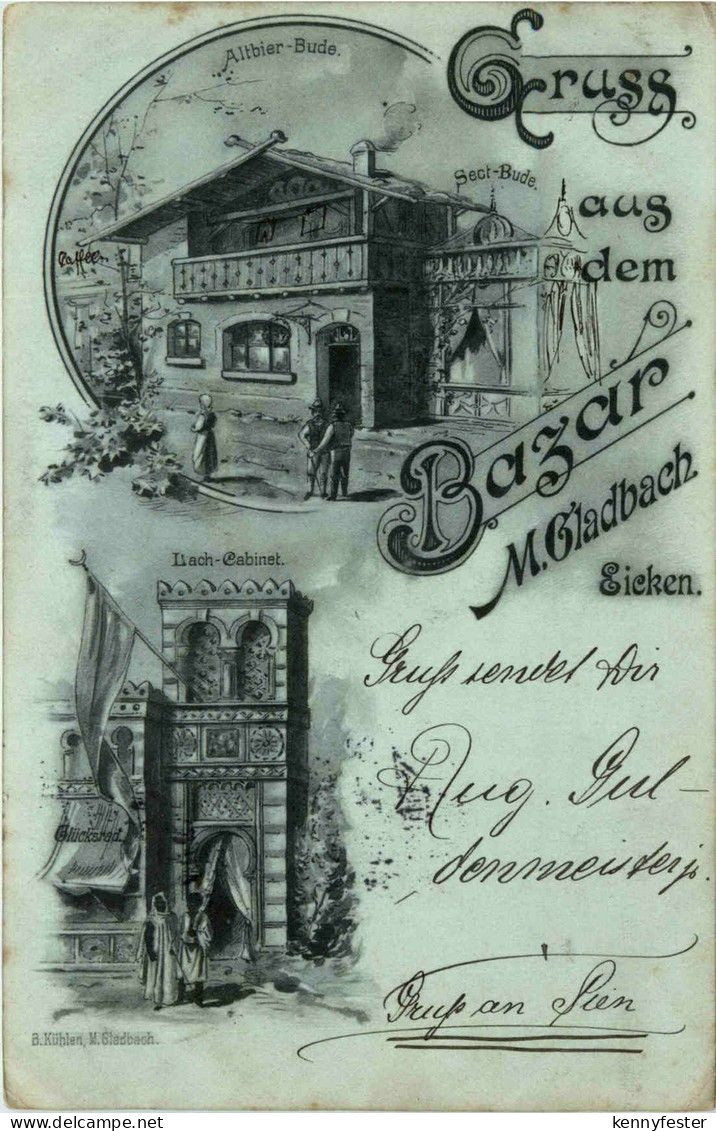 Altbier-Bude.
Gruss
Sect-Bude.
aus
dem
Caffee
Bazar
M. Gladbach
Eicken.
Lach-Cabinet.
Gruß sendet Dir
Aug. Gul-
denmeister jr.
Glücksrad.
Gruß an Sien
B. Kühlen, M. Gladbach.
kennyfester